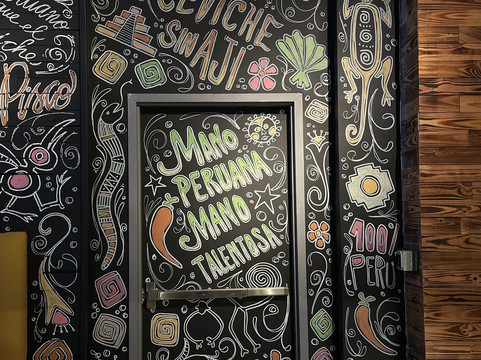 Peruana
que el
Ceviche
Pisco
CEVICHE
SIN AJI
MANO
+ PERUANA
MANO
TALENTOSA
100%
PERU